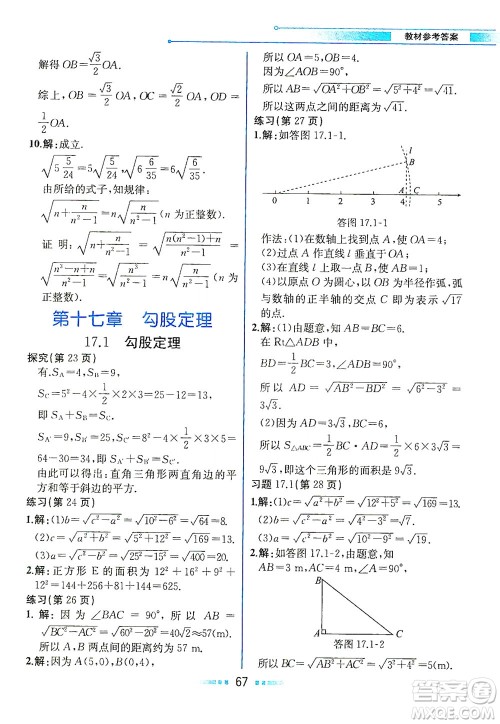 教材参考答案
解得 OB=√(3/2) OA.
综上,OB=√(3/2) OA,OC=√(2/2) OA,OD
=1/2 OA.
10.解:成立.
√(5 5/24)=5√(5/24),√(6 6/35)=6√(6/35)
由所给的式子,知规律:
√(n+n/(n²-1))=n√(n/(n²-1))(n 为正整数).
证明:√(n+n/(n²-1))=√((n(n²-1)+n)/(n²-1))=
√(n³/(n²-1))=√(n²·n/(n²-1))=n√(n/(n²-1))(n 为
正整数).
第十七章 勾股定理
17.1 勾股定理
探究(第 23 页)
解:有 S_A=4,S_B=9,
S_C=5²-4×1/2×2×3=25-4×3=13,
即 S_A+S_B=S_C.
S_A′=9,S_B′=25,S_C′=8²-4×1/2×3×5
=64-30=34,即 S_A′+S_B′=S_C′.
由此可以得出:直角三角形两直角边的平
方和等于斜边的平方.
练习(第 24 页)
1.解:(1)b=√(c²-a²)=√(10²-6²)=√64=8.
(2)c=√(a²+b²)=√(5²+12²)=√169=13.
(3)a=√(c²-b²)=√(25²-15²)=√400=20.
2.解:正方形 E 的面积=12²+16²+9²+
12²=144+256+81+144=625.
练习(第 26 页)
1.解:因为∠BAC=90°,所以 AB=
√(BC²-AC²)=√(60²-20²)≈57(m).
所以 A,B 两点间的距离约为 57 m.
2.解:因为 A(5,0),B(0,4),
所以 OA=5,OB=4.
又因为∠AOB=90°,
所以 AB=√(OA²+OB²)=√(5²+4²)=√41.
所以这两点之间的距离为√41.
练习(第 27 页)
1.解:如答图 17.1-1.
l
B
A C
0 1 2 3 4 5
答图 17.1-1
作法:(1)在数轴上找出点 A,使 OA=4.
(2)过点 A 作直线 l 垂直于 OA.
(3)在直线 l 上取点 B,使 AB=1.
(4)以原点 O 为圆心,以 OB 为半径作弧,弧
与数轴的正半轴的交点 C 即为表示 √17
的点.
2.解:(1)由题意,易知∠B=60°,AB=6.
在 Rt△ADB 中,∠ADB=90°,
BD=1/2 BC=1/2×6=3,
所以 AD=√(AB²-BD²)=√(6²-3²)=3√3.
(2)因为 BC=6,AD=3√3,
所以 S△ABC=1/2 BC·AD=1/2×6×3√3=
9√3,即这个三角形的面积是 9√3.
习题 17.1(第 28 页)
1.解:(1)c=√(a²+b²)=√(12²+5²)=√169=13.
(2)a=√(c²-b²)=√(4²-3²)=√7.
(3)b=√(c²-a²)=√(10²-9²)=√19.
2.解:如答图 17.1-2,由题意,知
AB=3 m,AC=4 m,∠A=90°,
B
A C
答图 17.1-2
所以 BC=√(AB²+AC²)=√(3²+4²)=5(m).
67